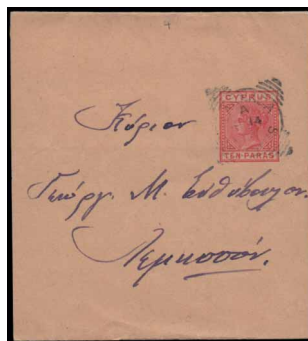 CYPRUS
TEN PARAS
Κύριον
Γεώργ. Μ.
Λεμησσόν.